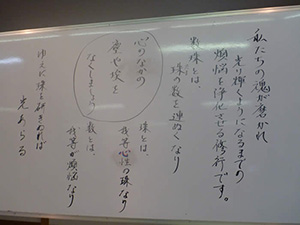 私たちの魂が磨かれ
光り輝くようになるまでの
煩悩を浄化させる修行です。
数珠とは、
珠の数を連ぬくなり
心のなかの
夢や埃を
なくしましょう
珠とは、
我等心性の珠なり
数とは、
我等が煩悩なり
ゆえに珠を研きぬれば
光あらわる